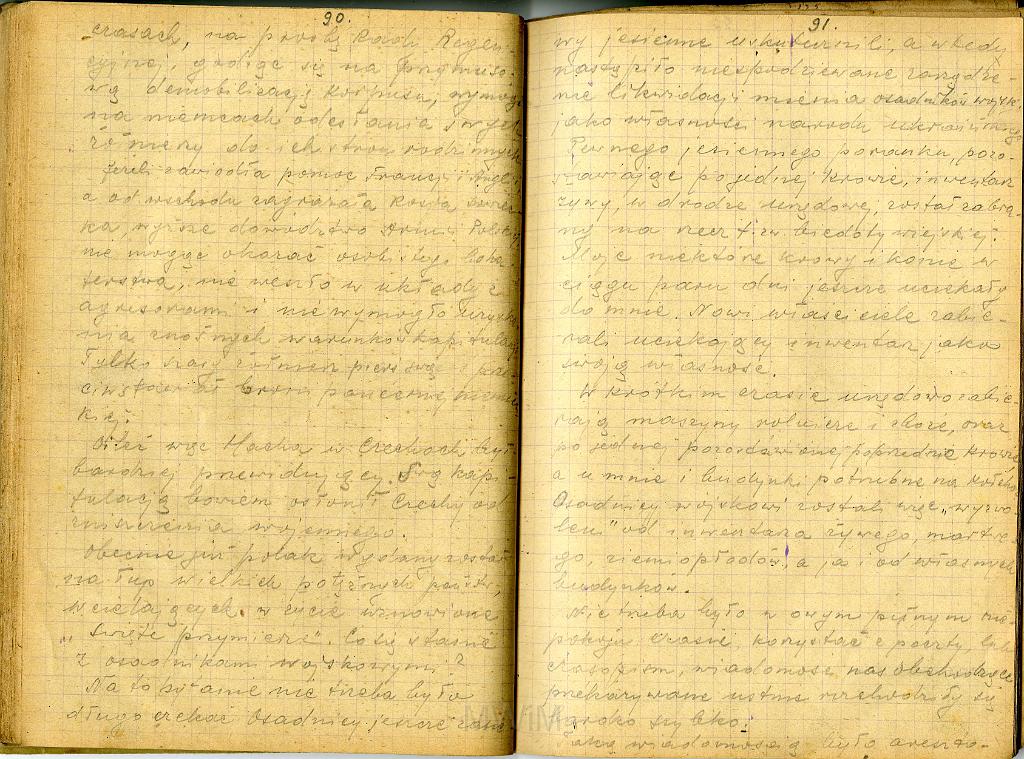 90.
czasach, na prośbę Rady Regen-
cyjnej, godząc się na przymuso-
wą demobilizację korpusu, wymógł
na niemcach odesłania swych
żołnierzy do ich stron rodzinnych
Jeśli zawiodła pomoc Francji i Anglii
a od wschodu zagrażała Rosja sowiec-
ka, wyższe dowództwo Armii Polskiej
nie mogąc okazać osobistego boha-
terstwa, nie weszło w układy z
agresorami i nie wymogło uzyska-
nia znośnych warunków kapitulacji
Tylko szary żołnierz pierś swą
ciwstawiał broni pancernej niemiec-
kiej.
Otóż więc Hacha w Czechach był
bardziej przewidujący. Swą kapi-
tulacją bowiem osłonił Czechy od
zniszczenia wojennego.
Obecnie już polak wydany został
na łup wielkich potężnych państw,
wcielających w życie wznowione
„Święte przymierze". Co się stanie
z osadnikami wojskowymi?
Na to pytanie nie trzeba było
długo czekać Osadnicy jeszcze
91.
wy jesienne uskutecznili, a wtedy
nastąpiło niespodziewane zarządze-
nie likwidacji mienia osadników wojsk.
jako własności narodu ukraińskiego
Pewnego jesiennego poranku, pozo-
stawiając po jednej krowie, inwentarz
żywy, w drodze urzędowej, został zabra-
ny na rzecz t.zw. biedoty wiejskiej.
Moje niektóre krowy i konie w
ciągu paru dni jeszcze uciekały
do mnie. Nowi właściciele zabie-
rali uciekający inwentarz jako
swoją własność.
W krótkim czasie urzędowo zabie-
rają maszyny rolnicze i zboże, oraz
po jednej pozostawionej poprzednio krowie
a u mnie i budynki potrzebne na kołchoz
Osadnicy wojskowi zostali więc „wyzwo-
leni" od inwentarza żywego, martwe-
go, ziemiopłodów, a ja i od własnych
budynków.
Nie trzeba było w owym pełnym nie-
pokoju czasie, korzystać z poczty, lub
czasopism, wiadomości nas obchodzące
przekazywane ustnie rozchodziły się
szybko.
Taką wiadomością było areszto-
MWiM